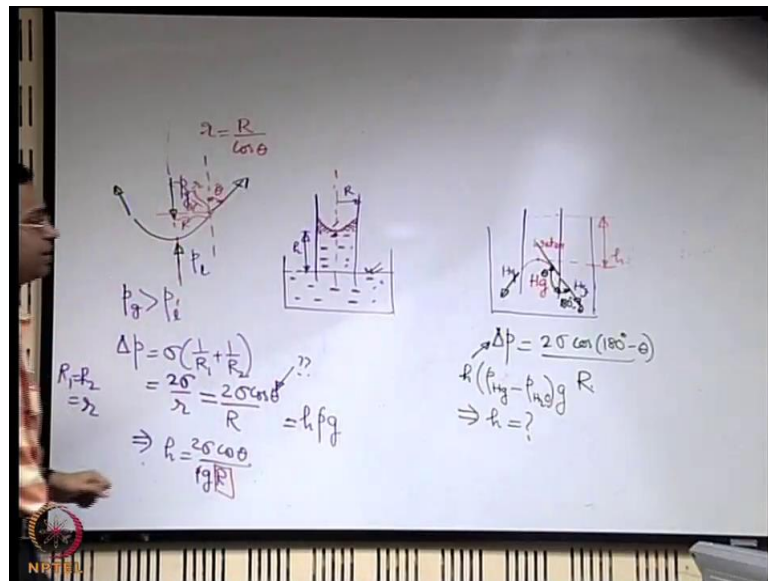 r = R / cosθ
r
θ
R
p_l
p_g > p_l
Δp = σ(1/R₁ + 1/R₂)
R₁=R₂
=r
= 2σ/r = 2σcosθ/R
??
= hρg
⇒ h = 2σcosθ / ρgR
R
h
water
Hg
Hg
Hg
θ
h
Δp = 2σ cos(180° - θ) / R
h(ρ_Hg - ρ_H₂O)g
⇒ h = ?
NPTEL